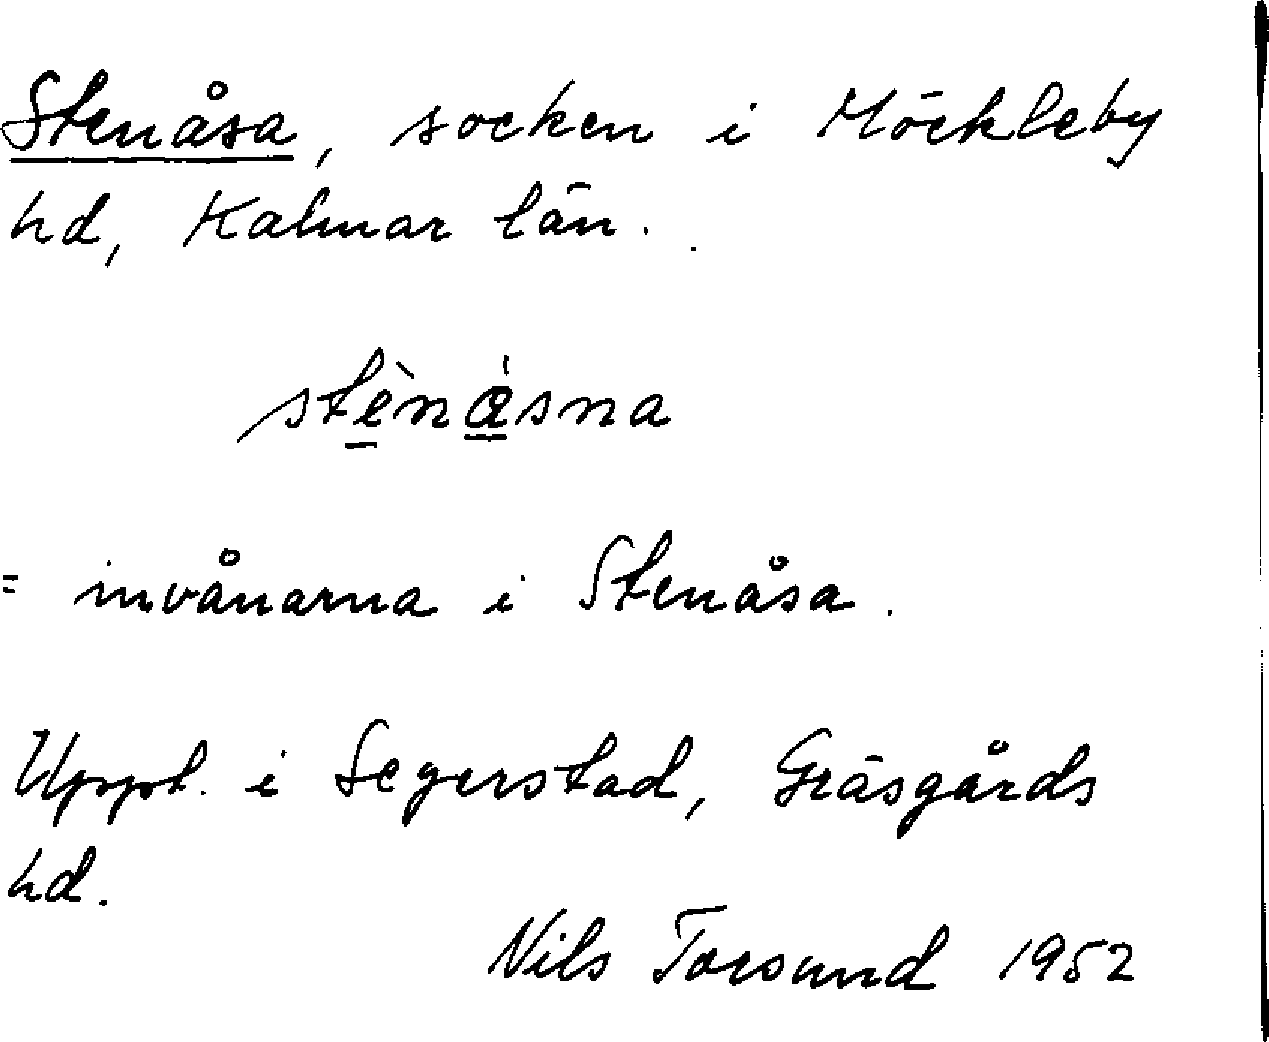 Stenåsa, socken i Möckleby
hd, Kalmar län.
stènásna
= invånarna i Stenåsa.
Uppt. i Segerstad, Gräsgårds
hd.
Nils Torsund 1952